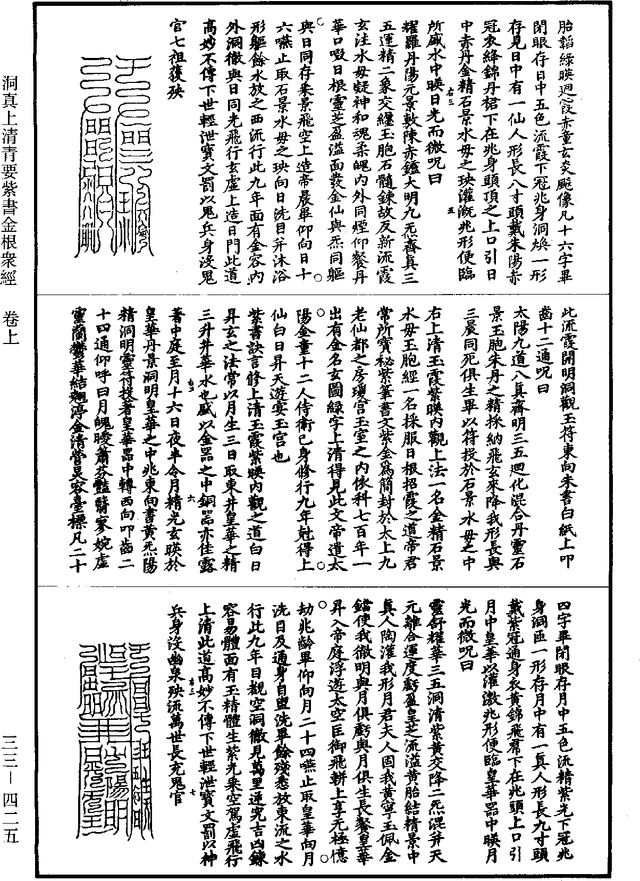 胎韜綠映迴霞赤童玄炎飈像凡十六字畢
閉眼存日中五色流霞下冠兆身洞煥一形
存見日中有一仙人形長八寸頭戴朱陽赤
冠衣絳錦丹裙下在兆身頭頂之上口引日
中赤丹金精石景水母之映灌溉兆形便臨
所盛水中映日光而微呪曰
耀羅丹陽元景敷陳赤鑪大明九炁齊真三
五運精二象交纏玉胞石髓鍊故反新流霞
玄注水母凝神和魂柔魄内外同煙仰餐丹
華口啜日根靈芝盈溢面發金仙與炁同軀
與日同存乘景飛空上造帝晨畢仰向日十
六嚥止取石景水母之映向日洗目并沐浴
形軀餘水放之西流行此九年面有金容内
外洞徹與日同光飛行玄虛上造日門此道
高妙不傳下世輕泄寶文罰以鬼兵身没鬼
官七祖獲殃
此流霞開明洞觀玉符東向朱書白紙上叩
齒十二通呪曰
太陽九道八真齊明三五迴化混合丹靈石
景玉胞朱丹之精採納飛玄來降我形長與
三晨同死俱生畢以符投於石景水母之中
右上清玉霞紫映内觀上法一名金精石景
水母玉胞經一名採服日根招霞之道帝君
常所寶祕紫筆書文紫金為簡封於太上九
老仙都之房瓊宮玉室之内依科七百年一
出有金名玄圖綠字上清得見此文帝遣太
陽金童十二人侍衛己身修行九年尅得上
仙白日昇天遊宴玉宮也
紫書訣言修上清玉霞紫映内觀之道白日
昇玄之法常以月生三日取東井皇華之精
三升井華水也盛以金器之中銅器亦佳露
著中庭至月十六日夜半令月精光玄映於
皇華丹景洞明皇華之中兆東向書黃炁陽
精洞明靈符投著皇華器中轉西向叩齒二
十四通仰呼曰月魄曖蕭芬豔翳寥婉虛
靈蘭鬱華結翹淳金清瑩炅容臺標凡二十
四字畢閉眼存月中五色流精紫光下冠兆
身洞匝一形存月中有一真人形長九寸頭
戴紫冠通身衣黃錦飛裙下在兆頭上口引
月中皇華以灌溉兆形便臨皇華器中映月
光而微呪曰
靈舒耀華三五洞清紫黃交降二炁混并天
元離合運度虧盈皇芝流溢黃胎結精景中
真人陶灌我形月君夫人固我黃寧玉佩金
鐺使我徹明與月俱虧與月俱生長餐皇華
昇入帝庭浮遊太空匡御飛軿上享元極億
劫兆齡畢仰向月二十四嚥止取皇華向月
洗目及通身自盥洗畢餘殘悉放東流之水
行此九年目觀空洞徹見萬里逆究吉凶鍊
容易體面有玉精體生紫光乘空駕虛飛行
上清此道高妙不傳下世輕泄寶文罰以神
兵身没幽泉殃流萬世長充鬼官
洞真上清青要紫書金根衆經　卷上
三三—四二五